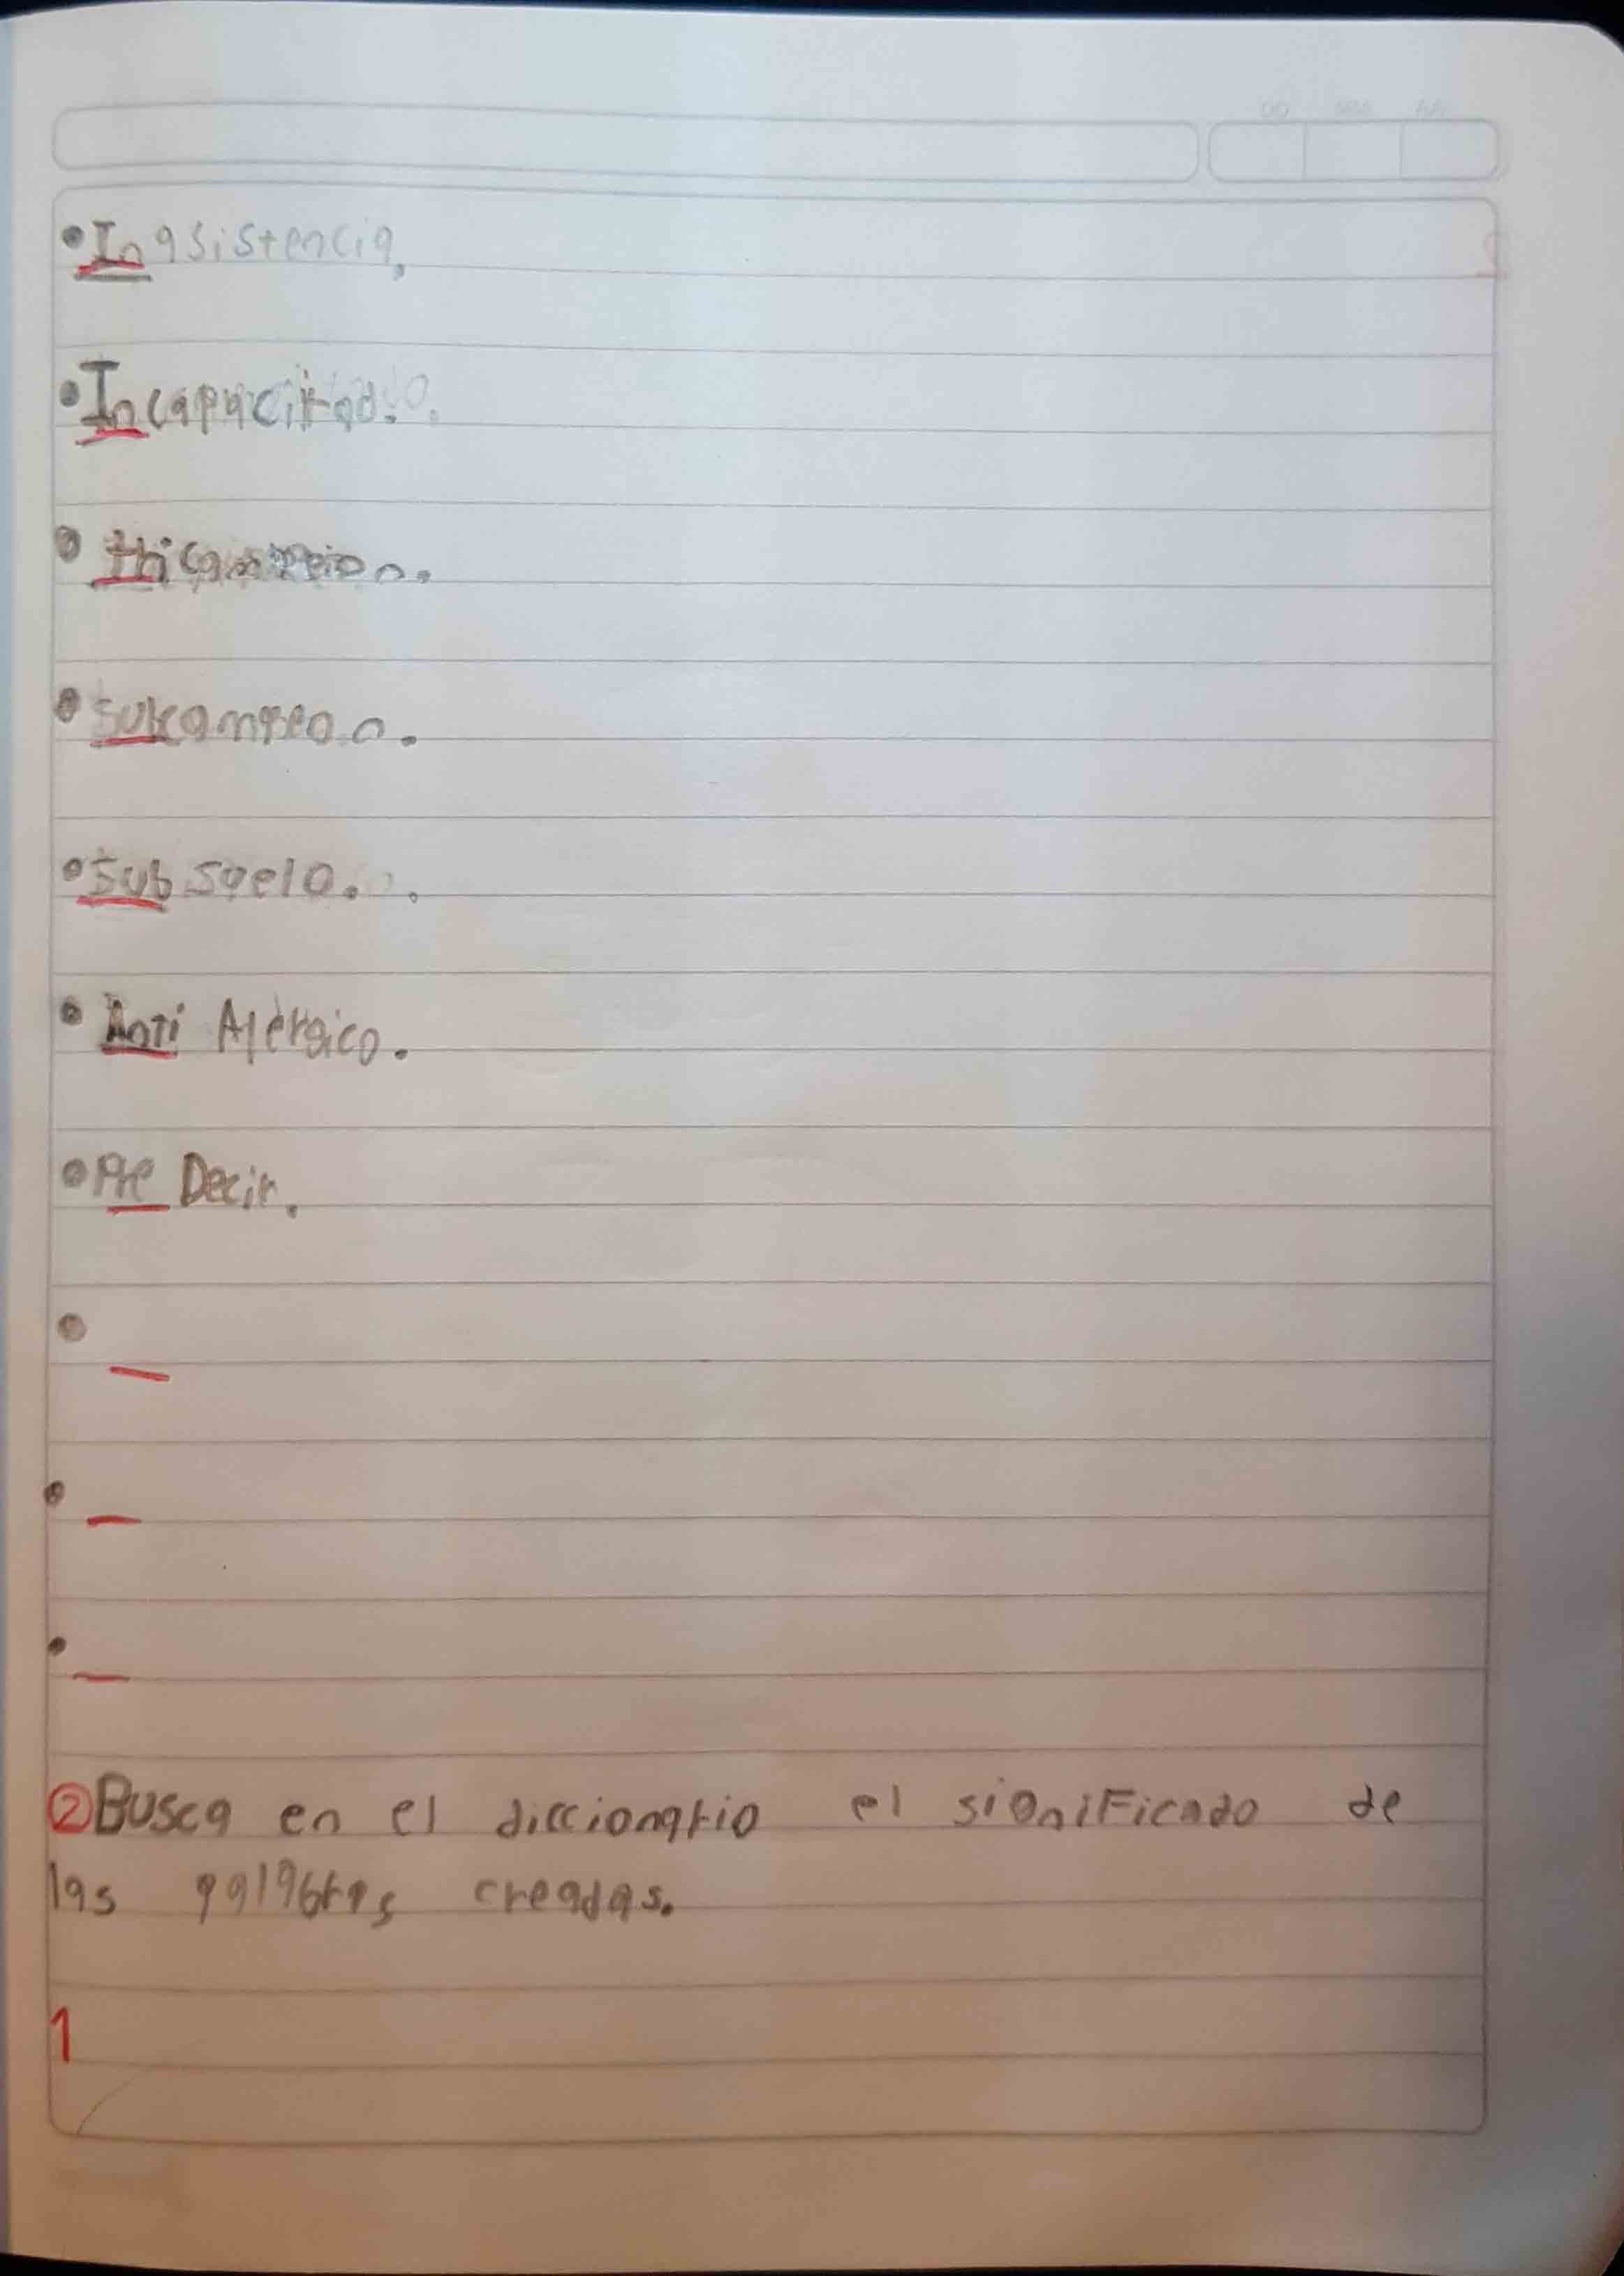 • Inasistencia,
• Incapacitado.
• tricampeion.
• Subcampeon.
• Sub suelo.
• Anti Alérgico.
• Pre Decir.
•
•
•
②Busca en el diccionario el significado de
las palabras creadas.
1